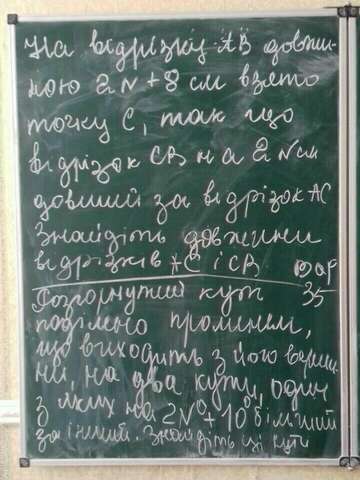 На відрізку АВ довжи-
ною 2N+8 см взято
точку С, так що
відрізок СВ на 2N см
довший за відрізок АС
Знайдіть довжини
відрізків АС і СВ вар
Розгорнутий кут 35
поділено променем,
що виходить з його верши-
ни, на два кути, один
з яких на 2N°+10° більший
за інший. Знайдіть ці кути